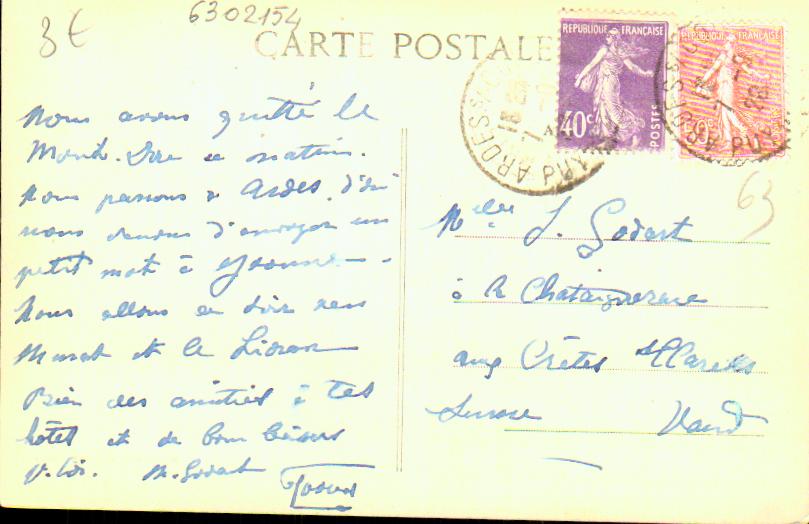 3€
6302154
CARTE POSTALE
REPUBLIQUE FRANÇAISE
40c
POSTES
REPUBLIQUE FRANÇAISE
ARDES
PUY
Nous avons quitté le
Mont-Dore ce matin.
Nous passons à Ardes, d'où
nous venons d'envoyer un
petit mot à Yvonne.
Nous allons ce soir vers
Murat et le Lioran
Bien des amitiés à tes
hôtes et de bons baisers
63
Melle J. Godart
à la Chataigneraie
aux Crêtes s/Clarens
Suisse Vaud